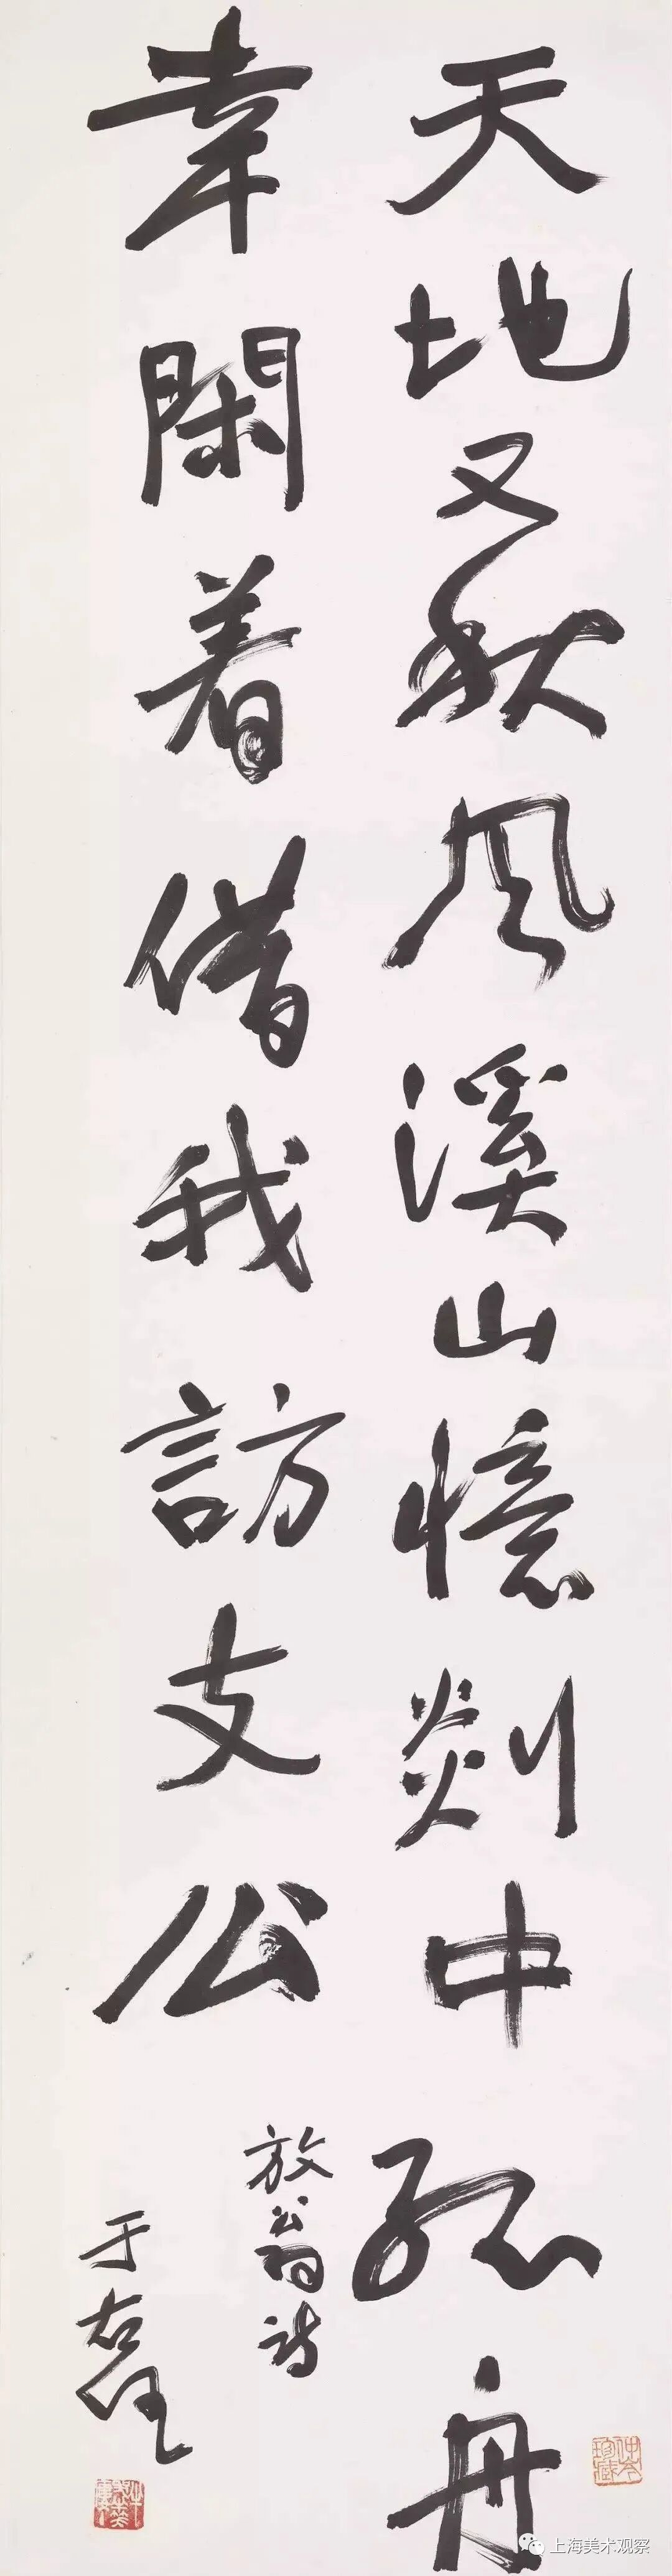 天地又秋風溪山憶剡中孤舟
幸閑着借我訪支公
放翁詩
于右任
上海美术观察